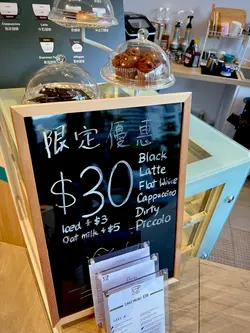 限定優惠
$30
Black
Latte
Flat White
Cappuccino
Dirty
Piccolo
iced +$3
Oat milk +$5